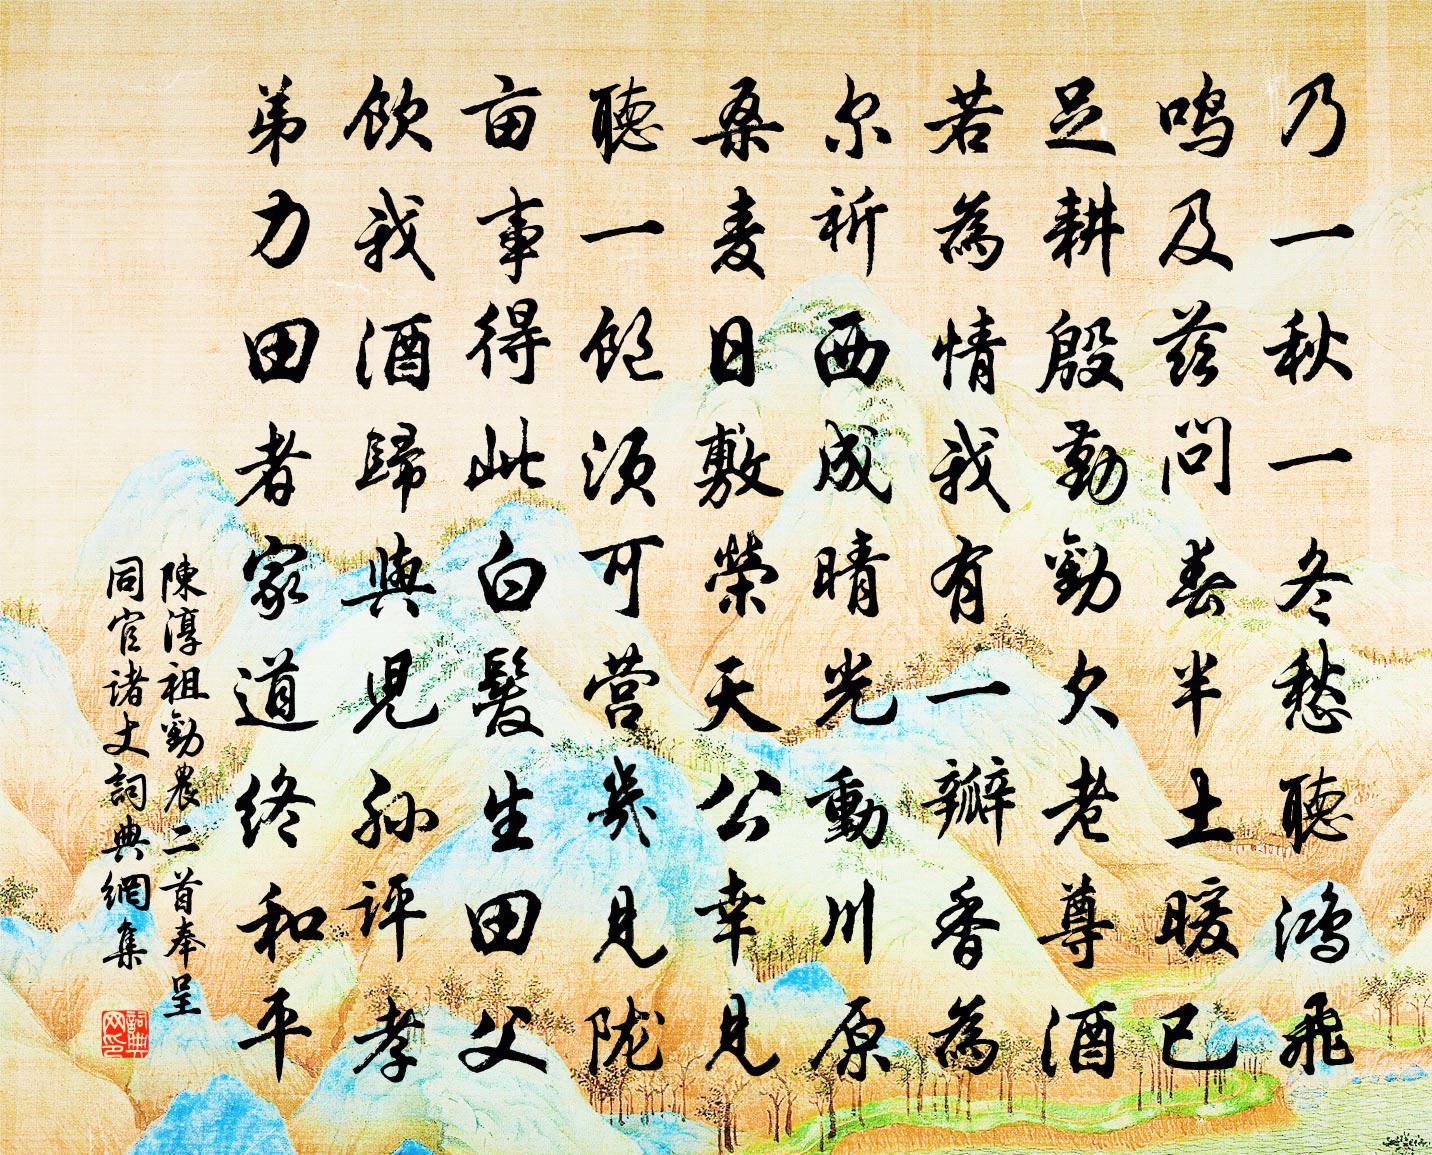 乃一秋一冬愁聽鴻飛
鸣及兹问春半土暖已
足耕殷勤勸父老尊酒
若為情我有一瓣香為
尔祈西成晴光動川原
桑麦日敷榮天公幸見
聽一飽须可营幾見陇
亩事得此白髮生田父
飲我酒歸與兒孙評孝
弟力田者家道终和平
陳淳祖勸農二首奉呈
同官诸丈詞典網集
詞典网印